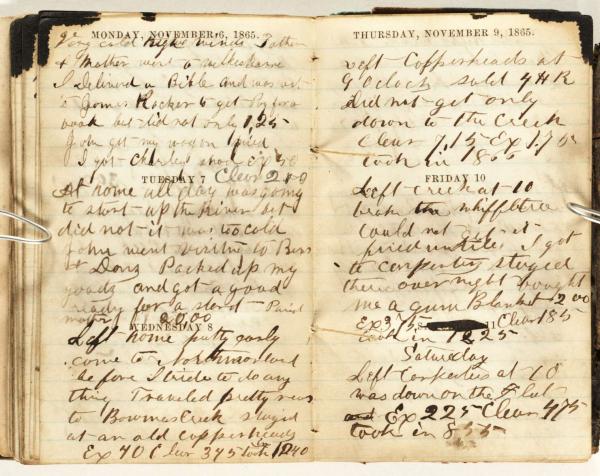 MONDAY, NOVEMBER 6, 1865.
Very cold high winds Father
& Mother went a
I Delivered a Bible and was
to James Rocker to get Pay for a
book but did not only 1,25
John got my wagon fixed
I got Charley shod Ex 50
TUESDAY 7 Clear 2 00
At home all day was going
to start up the river but
did not it was too cold
John went visiting to Bens
& Dons Packed up my
goods and got a good
ready for a start Paid
mother 12 00
WEDNESDAY 8
Left home putty early
come to
before I tride to do any
thing Traveled pretty
to Bowmas Creek stayed
at an old copperheads
Ex 70 Clear 345 took 1240
THURSDAY, NOVEMBER 9, 1865.
Left Copperheads at
9 Oclock sold 4 H R
did not get only
down to the Creek
Clear 7,15 Ex 1,70
took in 1855
FRIDAY 10
Left Creek at 10
broke the whiffletree
could not get it
fixed untill I got
to Corpesters stayed
there over night bought
me a gum Blanket 200
Ex 3,75 11 Clear 185
took in 1225
Saturday
Left at 10
was down on the Flat
Ex 225 Clear 475
took in 855